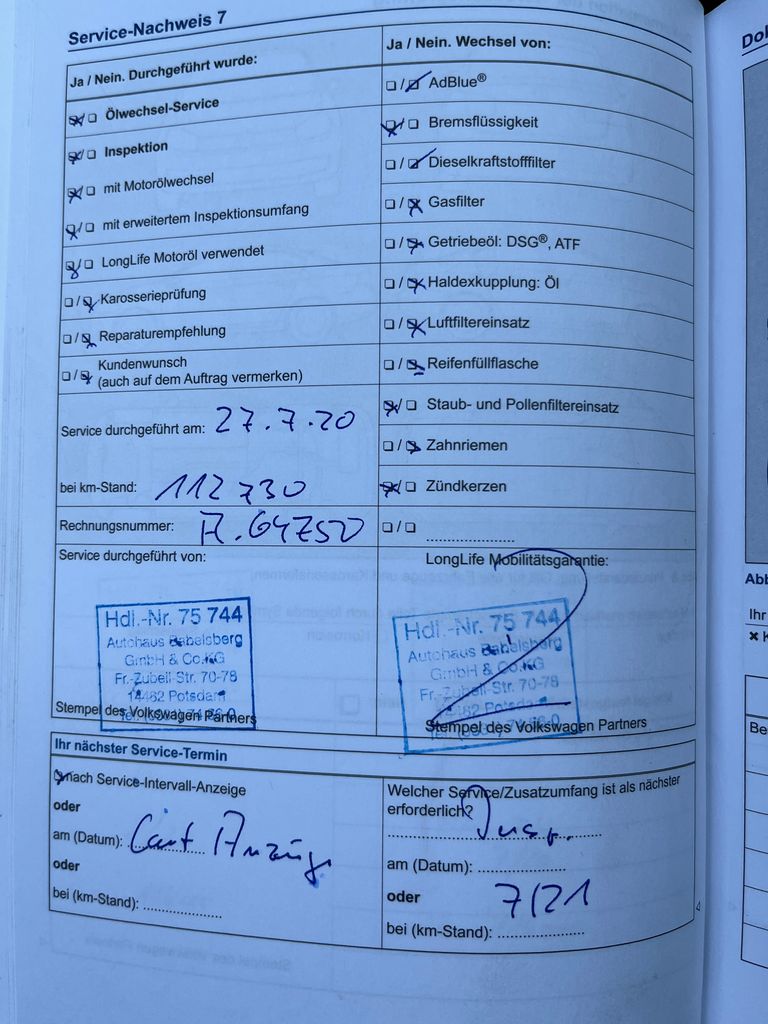 Service-Nachweis 7
Ja / Nein. Durchgeführt wurde:
Ölwechsel-Service
Inspektion
mit Motorölwechsel
mit erweitertem Inspektionsumfang
LongLife Motoröl verwendet
Karosserieprüfung
Reparaturempfehlung
Kundenwunsch
(auch auf dem Auftrag vermerken)
Service durchgeführt am: 27.7.20
bei km-Stand: 112 730
Rechnungsnummer: A.64750
Service durchgeführt von:
Hdl.-Nr. 75 744
Autohaus Babelsberg
GmbH & Co.KG
Fr.-Zubeil-Str. 70-78
14482 Potsdam
Stempel des Volkswagen Partners
Ja / Nein. Wechsel von:
AdBlue®
Bremsflüssigkeit
Dieselkraftstofffilter
Gasfilter
Getriebeöl: DSG®, ATF
Haldexkupplung: Öl
Luftfiltereinsatz
Reifenfüllflasche
Staub- und Pollenfiltereinsatz
Zahnriemen
Zündkerzen
LongLife Mobilitätsgarantie:
Hdl.-Nr. 75 744
Autohaus Babelsberg
GmbH & Co.KG
Fr.-Zubeil-Str. 70-78
14482 Potsdam
Stempel des Volkswagen Partners
Ihr nächster Service-Termin
nach Service-Intervall-Anzeige
oder
am (Datum): Laut Anzeige
oder
bei (km-Stand):
Welcher Service/Zusatzumfang ist als nächster
erforderlich?
Insp.
am (Datum):
oder 7/21
bei (km-Stand):
4
Abb
Ihr
K
Be